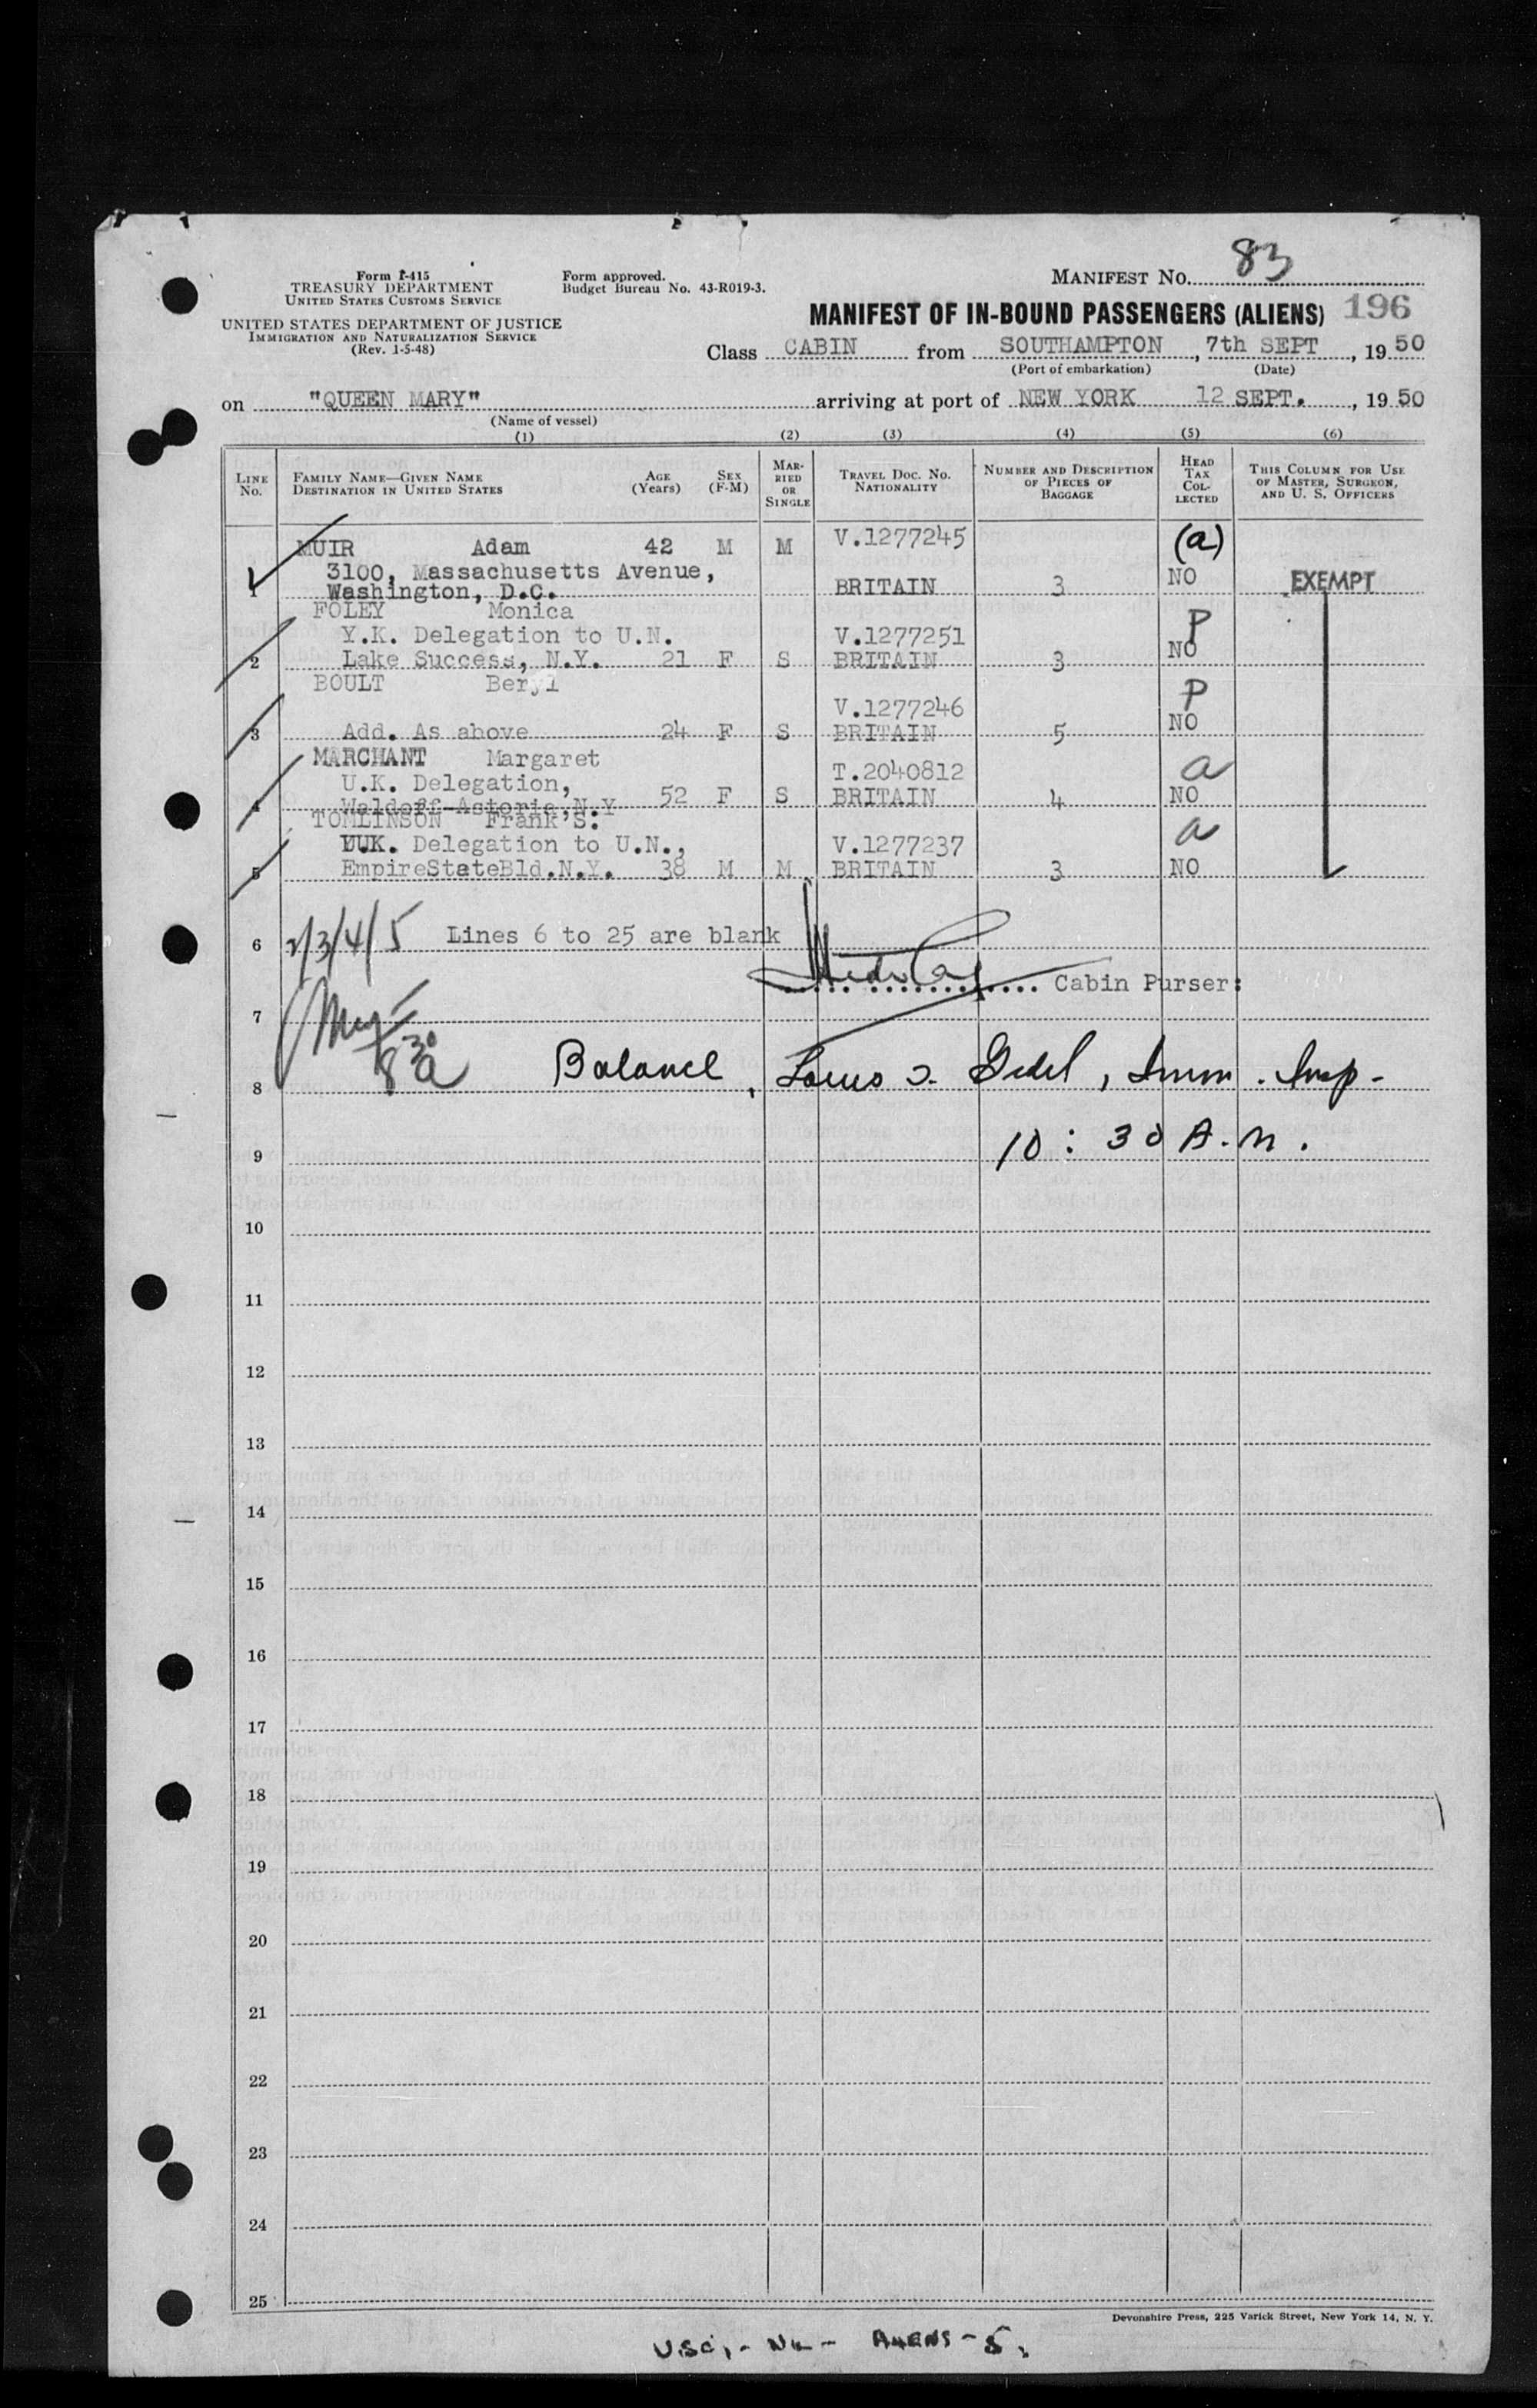 Form I-415
TREASURY DEPARTMENT
UNITED STATES CUSTOMS SERVICE
UNITED STATES DEPARTMENT OF JUSTICE
IMMIGRATION AND NATURALIZATION SERVICE
(Rev. 1-5-48)
Form approved.
Budget Bureau No. 43-R019-3.
MANIFEST No. 83
MANIFEST OF IN-BOUND PASSENGERS (ALIENS) 196
Class CABIN from SOUTHAMPTON, 7th SEPT, 1950
(Port of embarkation) (Date)
on "QUEEN MARY" arriving at port of NEW YORK 12 SEPT., 1950
(Name of vessel)
(1) (2) (3) (4) (5) (6)
LINE No. FAMILY NAME—GIVEN NAME DESTINATION IN UNITED STATES AGE (Years) SEX (F-M) MARRIED OR SINGLE TRAVEL DOC. NO. NATIONALITY NUMBER AND DESCRIPTION OF PIECES OF BAGGAGE HEAD TAX COLLECTED THIS COLUMN FOR USE OF MASTER, SURGEON, AND U. S. OFFICERS
MUIR Adam 42 M M V.1277245 (a)
3100, Massachusetts Avenue,
1 Washington, D.C. BRITAIN 3 NO EXEMPT
FOLEY Monica
Y.K. Delegation to U.N. V.1277251 P
2 Lake Success, N.Y. 21 F S BRITAIN 3 NO
BOULT Beryl P
V.1277246
3 Add. As above 24 F S BRITAIN 5 NO
MARCHANT Margaret
U.K. Delegation, T.2040812 a
4 Waldoff-Astoria,N.Y 52 F S BRITAIN 4 NO
TOMLINSON Frank S.
UUK. Delegation to U.N., V.1277237 a
5 EmpireStateBld.N.Y. 38 M M. BRITAIN 3 NO
2/3/4/5
6 Lines 6 to 25 are blank
Cabin Purser:
7
8 30 a
8 Balance, Imm. Insp-
9 10:30 A.M.
10
11
12
13
14
15
16
17
18
19
20
21
22
23
24
25
Devonshire Press, 225 Varick Street, New York 14, N. Y.
USC,- NL- ALIENS-5.